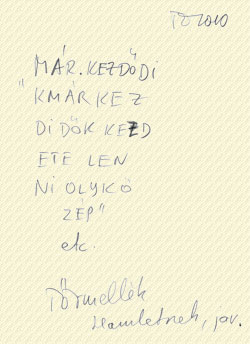 2010
"MÁR.KEZDŐDI
KMÁRKEZ
DIDŐKKEZD
ETELEN
NIOLYKÖ
ZÉP"
etc.
Törmellék
Hamletnek, jav.